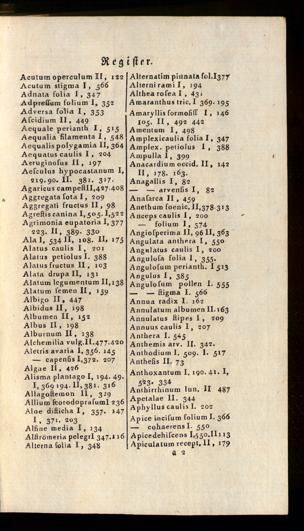 Register.
Acutum operculum II, 122
Acutum stigma I, 566
Adnata folia I, 347
Adpressum folium I, 352
Adversa folia I, 353
Ascidium II, 449
Aequale perianth I, 515
Aequalia filamenta I, 548
Aequalis polygamia II, 364
Aequatus caulis I, 204
Aeruginosus II, 197
Aesculus hypocastanum I,
219. 90. II. 381. 317.
Agaricus campest II, 427. 408
Aggregata sota I, 209
Aggregati fructus II, 98
Agrestis canina I, 505. I, 522
Agrimonia eupatoria I, 377
223. II, 389. 330
Ala I, 534 II, 108. II, 175
Alatus caulis I, 201
Alatus petiolus I. 388
Alatus fructus II, 103
Alata drupa II, 131
Alatum legumentum II, 138
Alatum semen II, 159
Albigo II, 447
Albidus II, 198
Albumen II, 152
Albus II, 198
Alburnum II, 138
Alchemilla vulg. II. 477. 420
Aletris avatia I, 356. 145
— capensis I, 372. 207
Algae II, 426
Alisma plantago I, 194. 49.
I, 369 194. II, 381. 316
Allagostemon II, 319
Allium scorodoprasum I 236
Aloe disticha I, 357. 147
I, 371. 203
Alsine media I, 134
Alströmeria pelegri I 347. 116
Alterna folia I, 348
Alternatim pinnata fol. I 377
Alterni rami I, 194
Althea rosea I, 431
Amaranthus tric. I 369. 195
Amaryllis formosiss I, 146
105. II, 492 442
Amentum I, 498
Amplexicaulia folia I, 347
Amplex. petiolus I, 388
Ampulla I, 399
Anacardium occid. II, 142
II, 178. 163.
Anagallis I, 82
— arvensis I, 82
Anasarca II, 459
Anethum foenic. II, 378. 313
Anceps caulis I, 200
— folium I, 574
Angiosperima II, 96 II, 363
Angulata anthera I, 550
Angulatus caulis I, 200
Angulosa folia I, 355.
Angulosum perianth. I 513
Angulus I, 385
Angulosum pollen I. 555
— stigma I. 566
Annua radix I. 162
Annulatum albumen II. 163
Annulatus stipes I, 209
Annuus caulis I, 207
Anthera I. 545
Anthemis arv. II. 342.
Anthodium I. 509. I. 517
Anthesis II. 73
Anthoxantum I, 190. 41. I,
523. 334
Anthirrhinum lun. II 487
Apetalae II. 344
Aphyllus caulis I. 202
Apice incisum folium I. 366
— cohaerens I. 550
Apice dehiscens I, 550. II 113
Apiculatum recept. II, 179
a 2